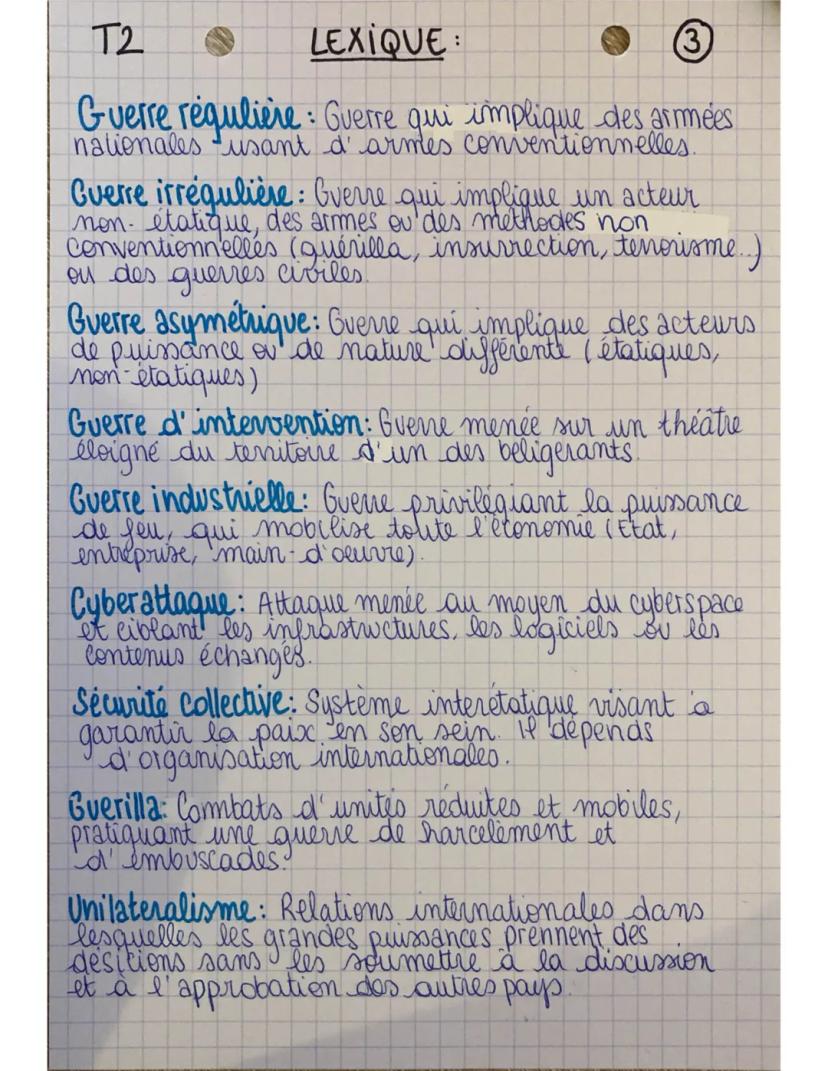 T2 LEXIQUE : 3
Guerre régulière : Guerre qui implique des armées
nationales usant d'armes conventionnelles.
Guerre irrégulière : Guerre qui implique un acteur
non-étatique, des armes ou des méthodes non
conventionnelles (guérilla, insurrection, terrorisme..)
ou des guerres civiles.
Guerre asymétrique : Guerre qui implique des acteurs
de puissance ou de nature différente (étatiques,
non-étatiques)
Guerre d'intervention : Guerre menée sur un théâtre
éloigné du territoire d'un des beligérants.
Guerre industrielle : Guerre privilégiant la puissance
de feu, qui mobilise toute l'économie (Etat,
entreprise, main-d'oeuvre).
Cyberattaque : Attaque menée au moyen du cyberspace
et ciblant les infrastructures, les logiciels ou les
contenus échangés.
Sécurité collective : Système interétatique visant à
garantir la paix en son sein. Il dépends
d'organisation internationales.
Guerilla : Combats d'unités réduites et mobiles,
pratiquant une guerre de harcèlement et
d'embuscades.
Unilateralisme : Relations internationales dans
lesquelles les grandes puissances prennent des
désitions sans les soumettre à la discussion
et à l'approbation des autres pays.